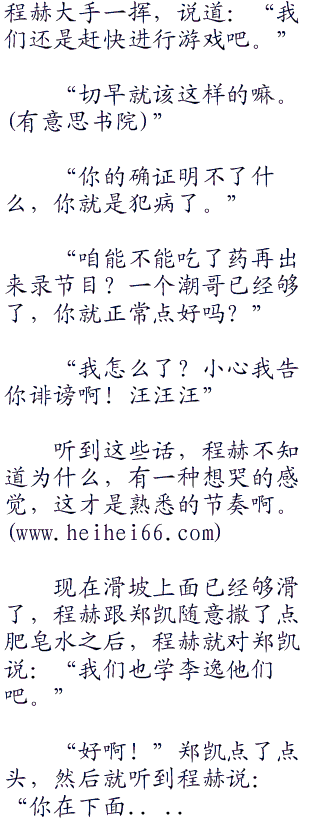 程赫大手一挥，说道：“我
们还是赶快进行游戏吧。”
“切早就该这样的嘛。
(有意思书院)”
“你的确证明不了什
么，你就是犯病了。”
“咱能不能吃了药再出
来录节目？一个潮哥已经够
了，你就正常点好吗？”
“我怎么了？小心我告
你诽谤啊！汪汪汪”
听到这些话，程赫不知
道为什么，有一种想哭的感
觉，这才是熟悉的节奏啊。
(www.heihei66.com)
现在滑坡上面已经够滑
了，程赫跟郑凯随意撒了点
肥皂水之后，程赫就对郑凯
说：“我们也学李逸他们
吧。”
“好啊！”郑凯点了点
头，然后就听到程赫说：
“你在下面....